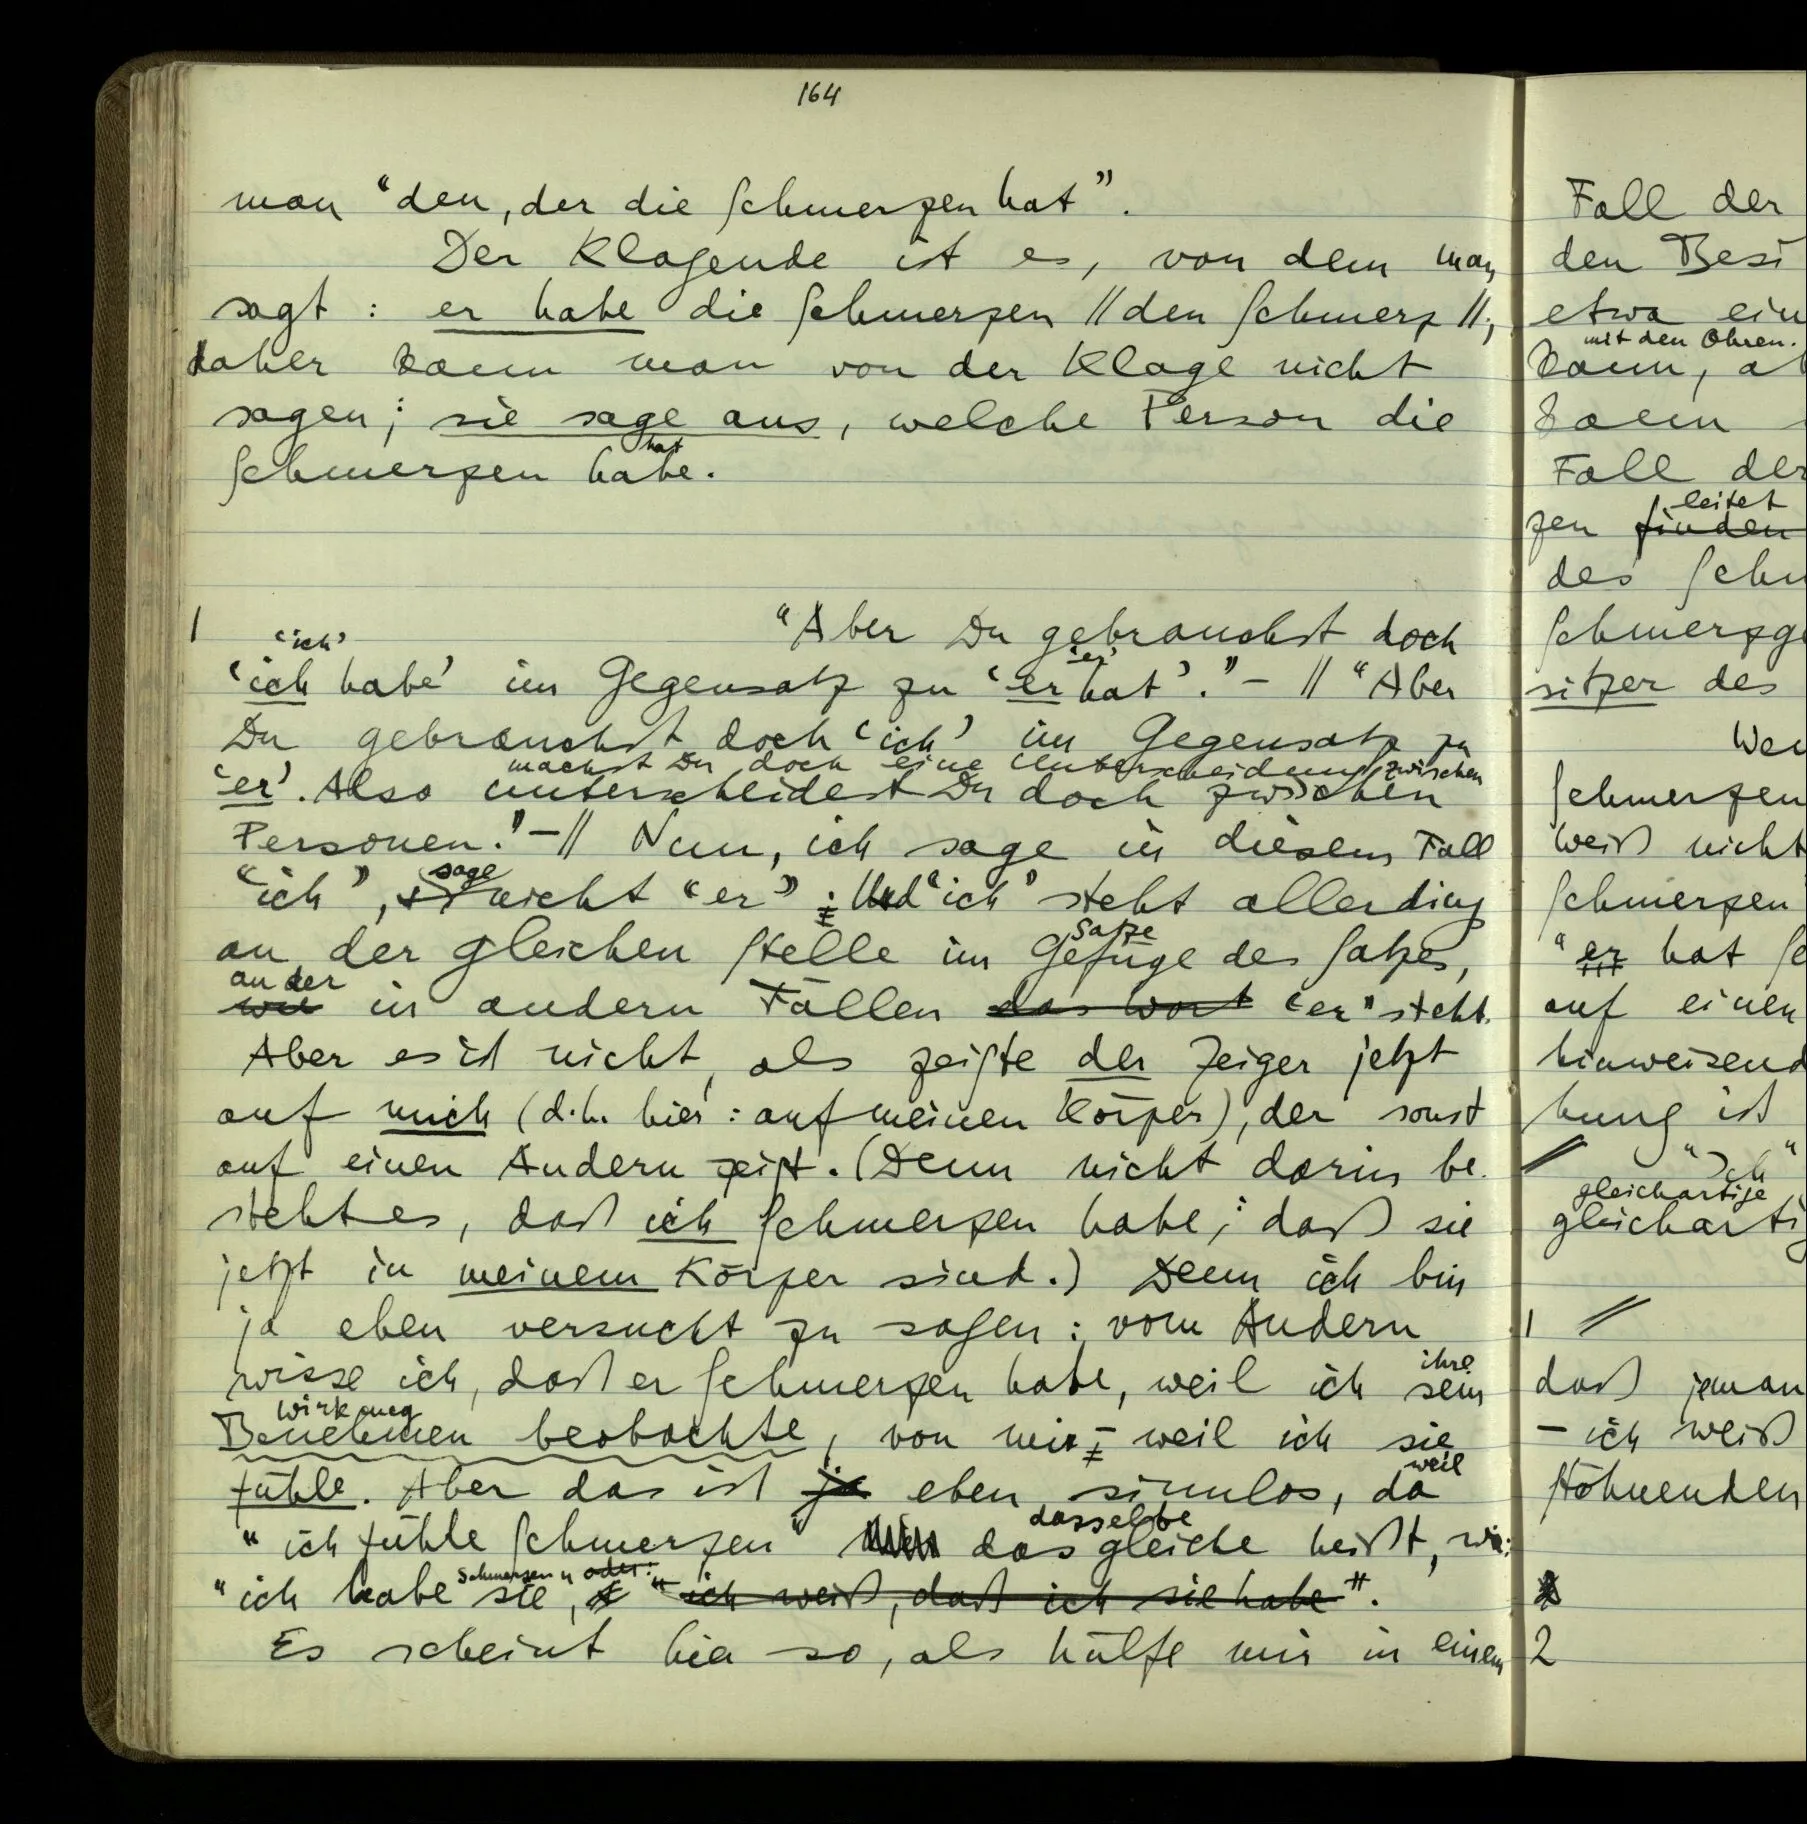 164
man “den, der die Schmerzen hat”.
Der Klagende ist es, von dem man
sagt: er habe die Schmerzen // den Schmerz //;
daher kann man von der Klage nicht
sagen; sie sage aus, welche Person die
hat
Schmerzen habe.
1 “Aber Du gebrauchst doch
‘ich’ ‘er’
‘ich habe’ im Gegensatz zu ‘er hat’.” – // “Aber
Du gebrauchst doch ‘ich’ im Gegensatz zu
machst Du doch eine Unterscheidung zwischen
‘er’. Also unterscheidest Du doch zwischen
Personen.” – // Nun, ich sage in diesem Fall
sage
“ich”, nicht “er”; Und “ich” steht allerdings
Satze
an der gleichen Stelle im Gefüge des Satzes,
an der
wie in andern Fällen das Wort “er” steht.
Aber es ist nicht, als zeigte der Zeiger jetzt
auf mich (d.h. hier: auf meinen Körper), der sonst
auf einen Andern zeigt. (Denn nicht darin be-
steht es, daß ich Schmerzen habe; daß sie
jetzt in meinem Körper sind.) Denn ich bin
ja eben versucht zu sagen: vom Andern
ihre
wisse ich, daß er Schmerzen habe, weil ich sein
Wirkung
Benehmen beobachte, von mir – weil ich sie
weil
fühle. Aber das ist ja eben sinnlos, da
dasselbe
“ich fühle Schmerzen” das gleiche heißt, wie:
Schmerzen” oder:
“ich habe sie, “ich weiß, daß ich sie habe”.
Es scheint hier so, als hülfe mir in einem
Fall der
den Besi
etwa ein
mit den Ohren.
kann, ab
kann
Fall der
leitet
zen finden
des Schm
Schmerzge
sitzer des
Wen
Schmerzen
weiß nicht
Schmerzen
“er hat Sc
auf einen
hinweisend
bung ist
// “Ich”
gleichartige
gleicharti
1 //
daß jeman
– ich weiß
Stöhnenden
2